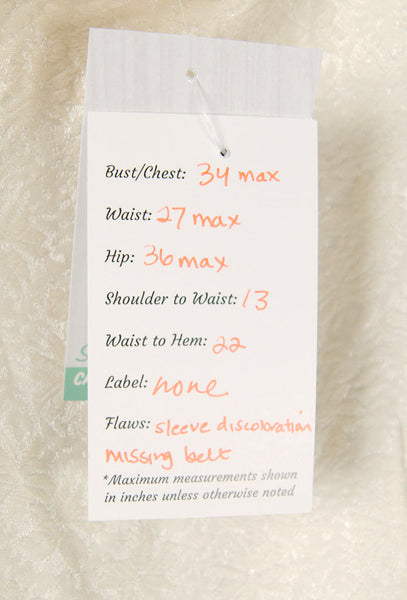 Bust/Chest: 34 max
Waist: 27 max
Hip: 36 max
Shoulder to Waist: 13
Waist to Hem: 22
Label: none
Flaws: sleeve discoloration
missing belt
*Maximum measurements shown
in inches unless otherwise noted